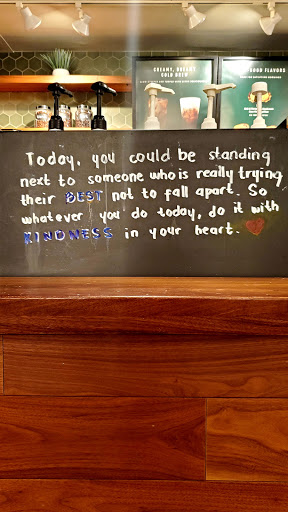 CREAMY, DREAMY
COLD BREW
GOOD FLAVORS
Today, you could be standing
next to someone who is really trying
their BEST not to fall apart. So
whatever you do today, do it with
KINDNESS in your heart.